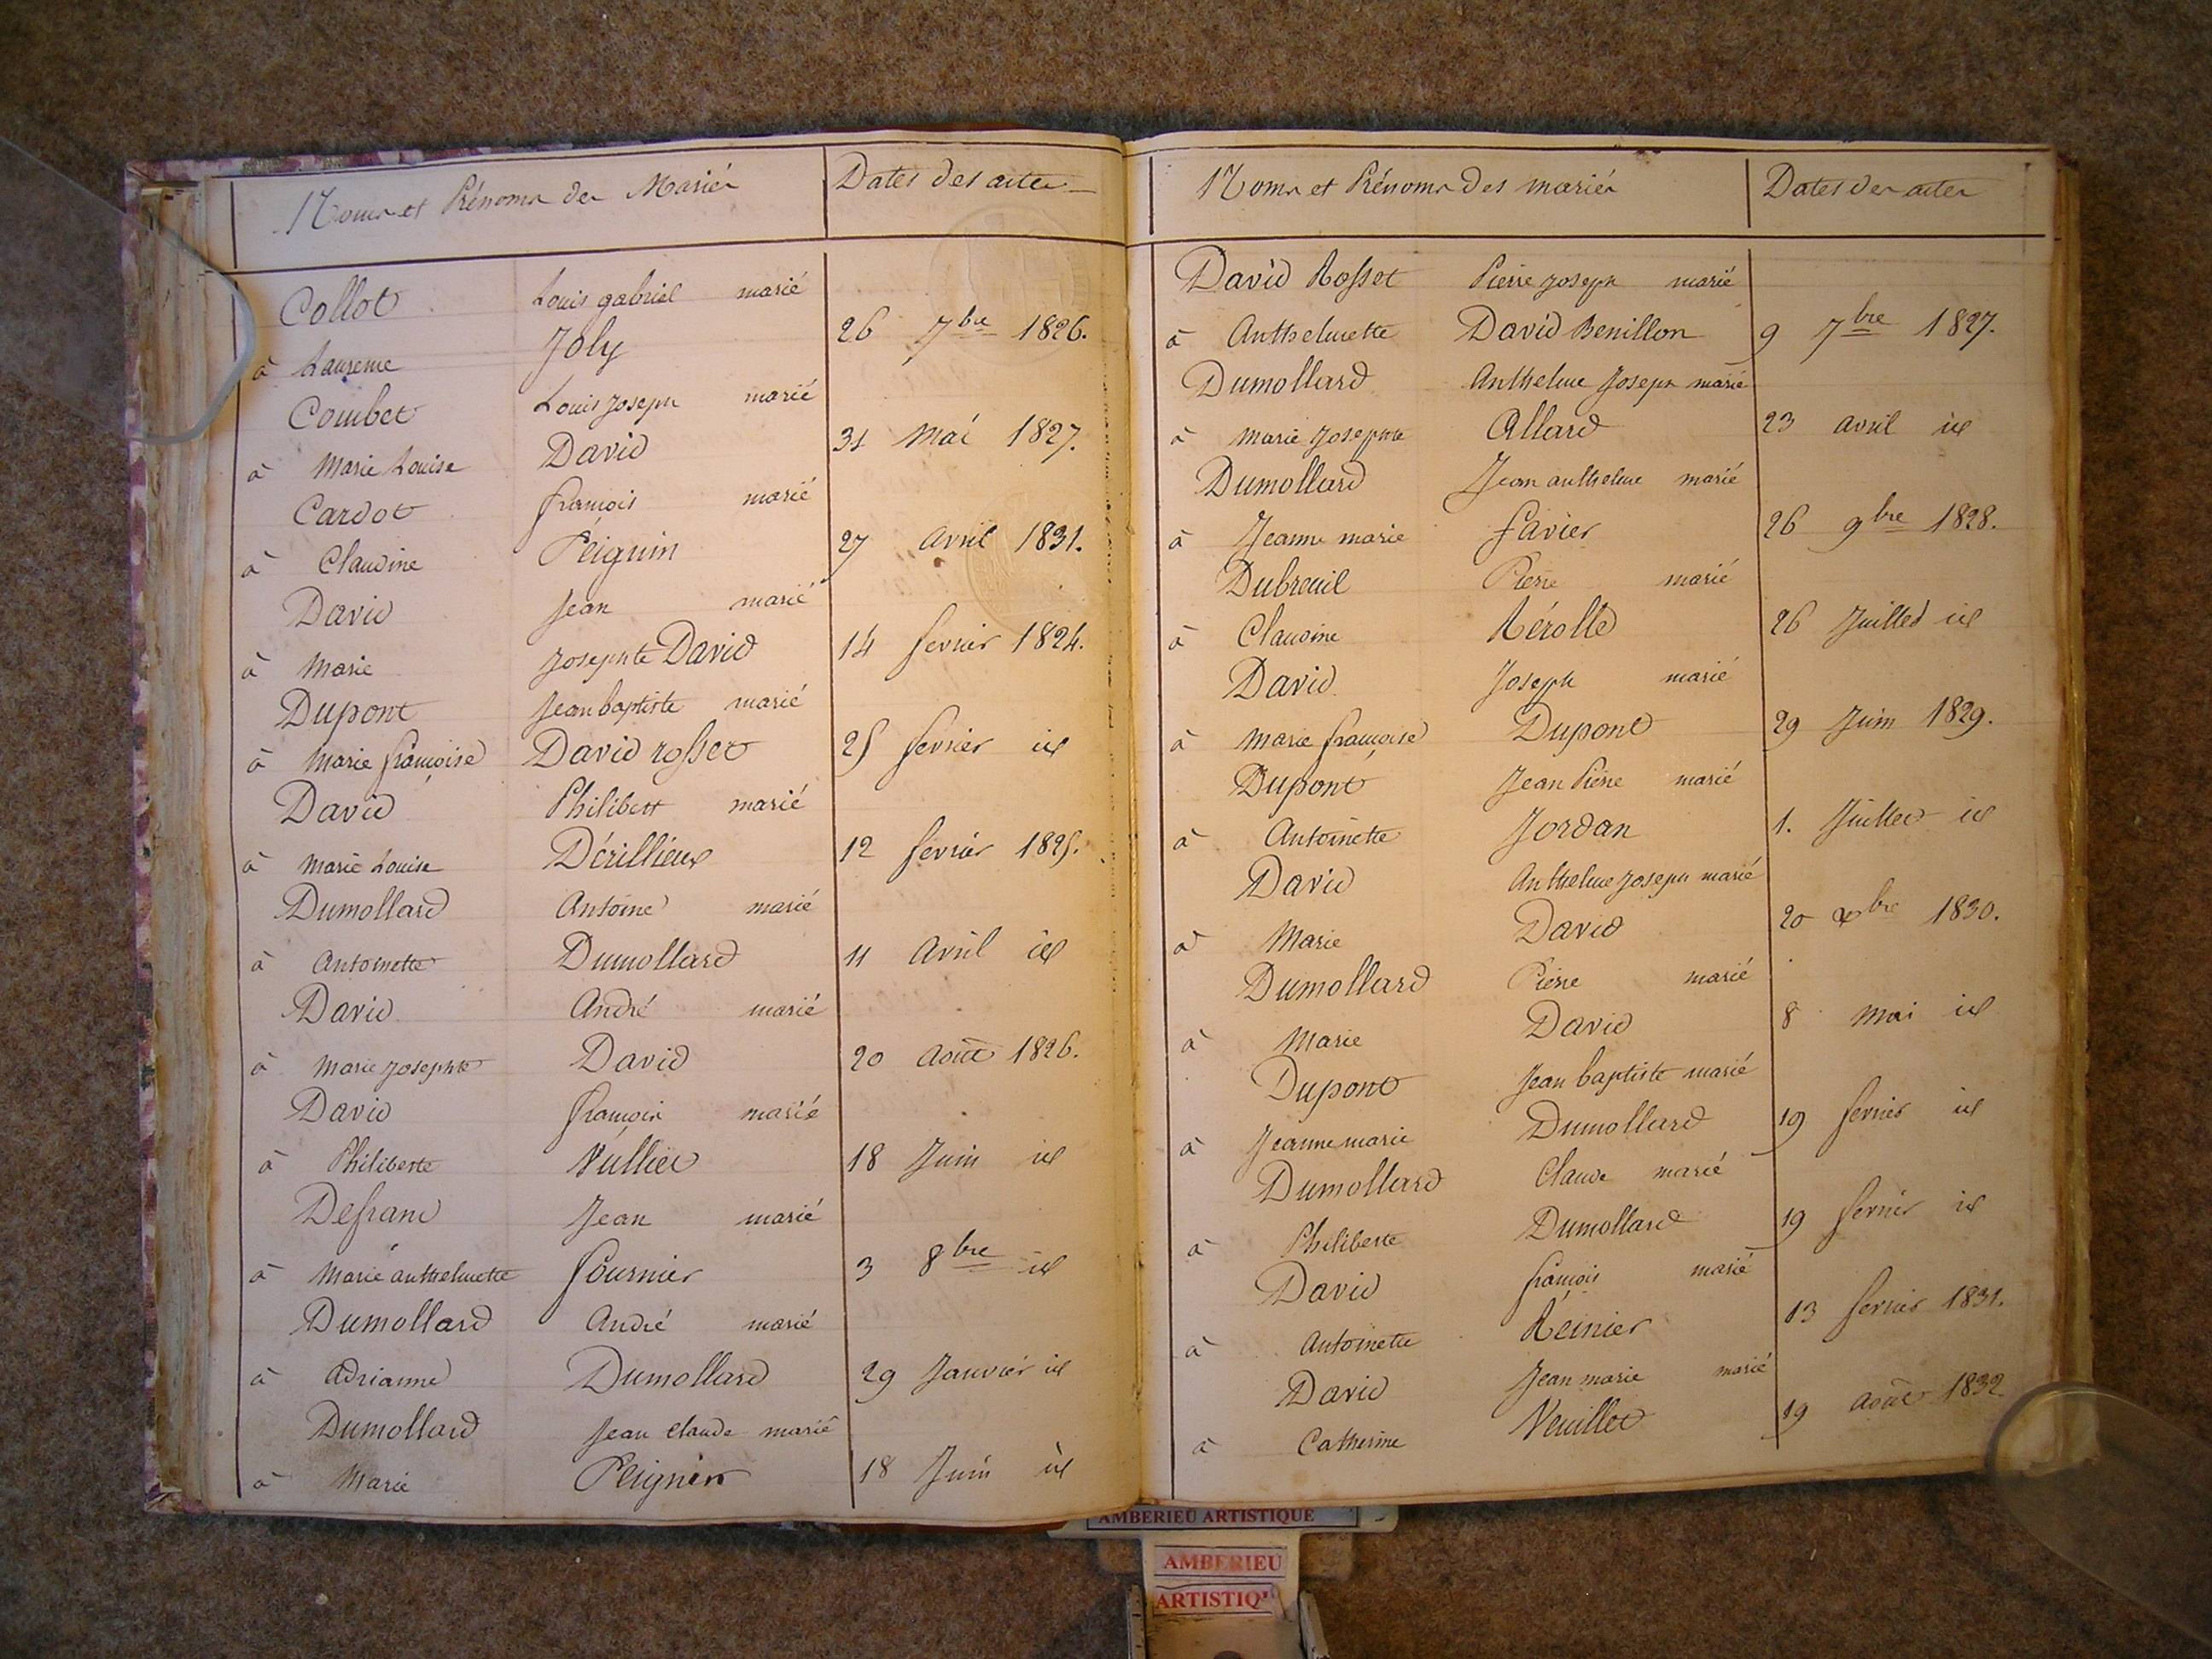 Noms et Prénoms des Mariés Dates des actes
Collot Louis gabriel marié
à Laurence Joly 26 7bre 1826.
Combet Louis Joseph marié
à Marie Louise David 31 Mai 1827.
Cardot françois marié
à Claudine Péiguin 27 Avril 1831.
David Jean marié
à Marie Josephte David 14 fevrier 1824.
Dupont Jean baptiste marié
à Marie françoise David rosset 25 fevrier id
David Philibert marié
à Marie Louise Dérillieux 12 fevrier 1825.
Dumollard Antoine marié
à Antoinette Dumollard 11 Avril id
David André marié
à Marie Josephte David 20 Août 1826.
David françois marié
à Philiberte Vulliet 18 Juin id
Defranc Jean marié
à Marie anthelmette fournier 3 8bre id
Dumollard André marié
à Adrianne Dumollard 29 Janvier id
Dumollard Jean Claude marié
à Marie Peignin 18 Juin id
Noms et Prénoms des mariés Dates des actes
David Rosset Pierre Joseph marié
à Anthelmette David Benillon 9 7bre 1827.
Dumollard Anthelme Joseph marié
à Marie Josephte Allard 23 avril id
Dumollard Jean anthelme marié
à Jeanne marie favier 26 9bre 1828.
Dubreuil Pierre marié
à Claudine Rérolle 26 Juillet id
David Joseph marié
à Marie françoise Dupont 29 Juin 1829.
Dupont Jean Pierre marié
à Antoinette Jordan 1. Juillet id
David Anthelme Joseph marié
à Marie David 20 xbre 1830.
Dumollard Pierre marié
à Marie David 8 Mai id
Dupont Jean baptiste marié
à Jeanne marie Dumollard 19 fevrier id
Dumollard Claude marié
à Philiberte Dumollard 19 fevrier id
David françois marié
à Antoinette Réinier 13 fevrier 1831.
David Jean marie marié
à Catherine Veuillet 19 Août 1832
AMBERIEU ARTISTIQUE
AMBERIEU
ARTISTIQ